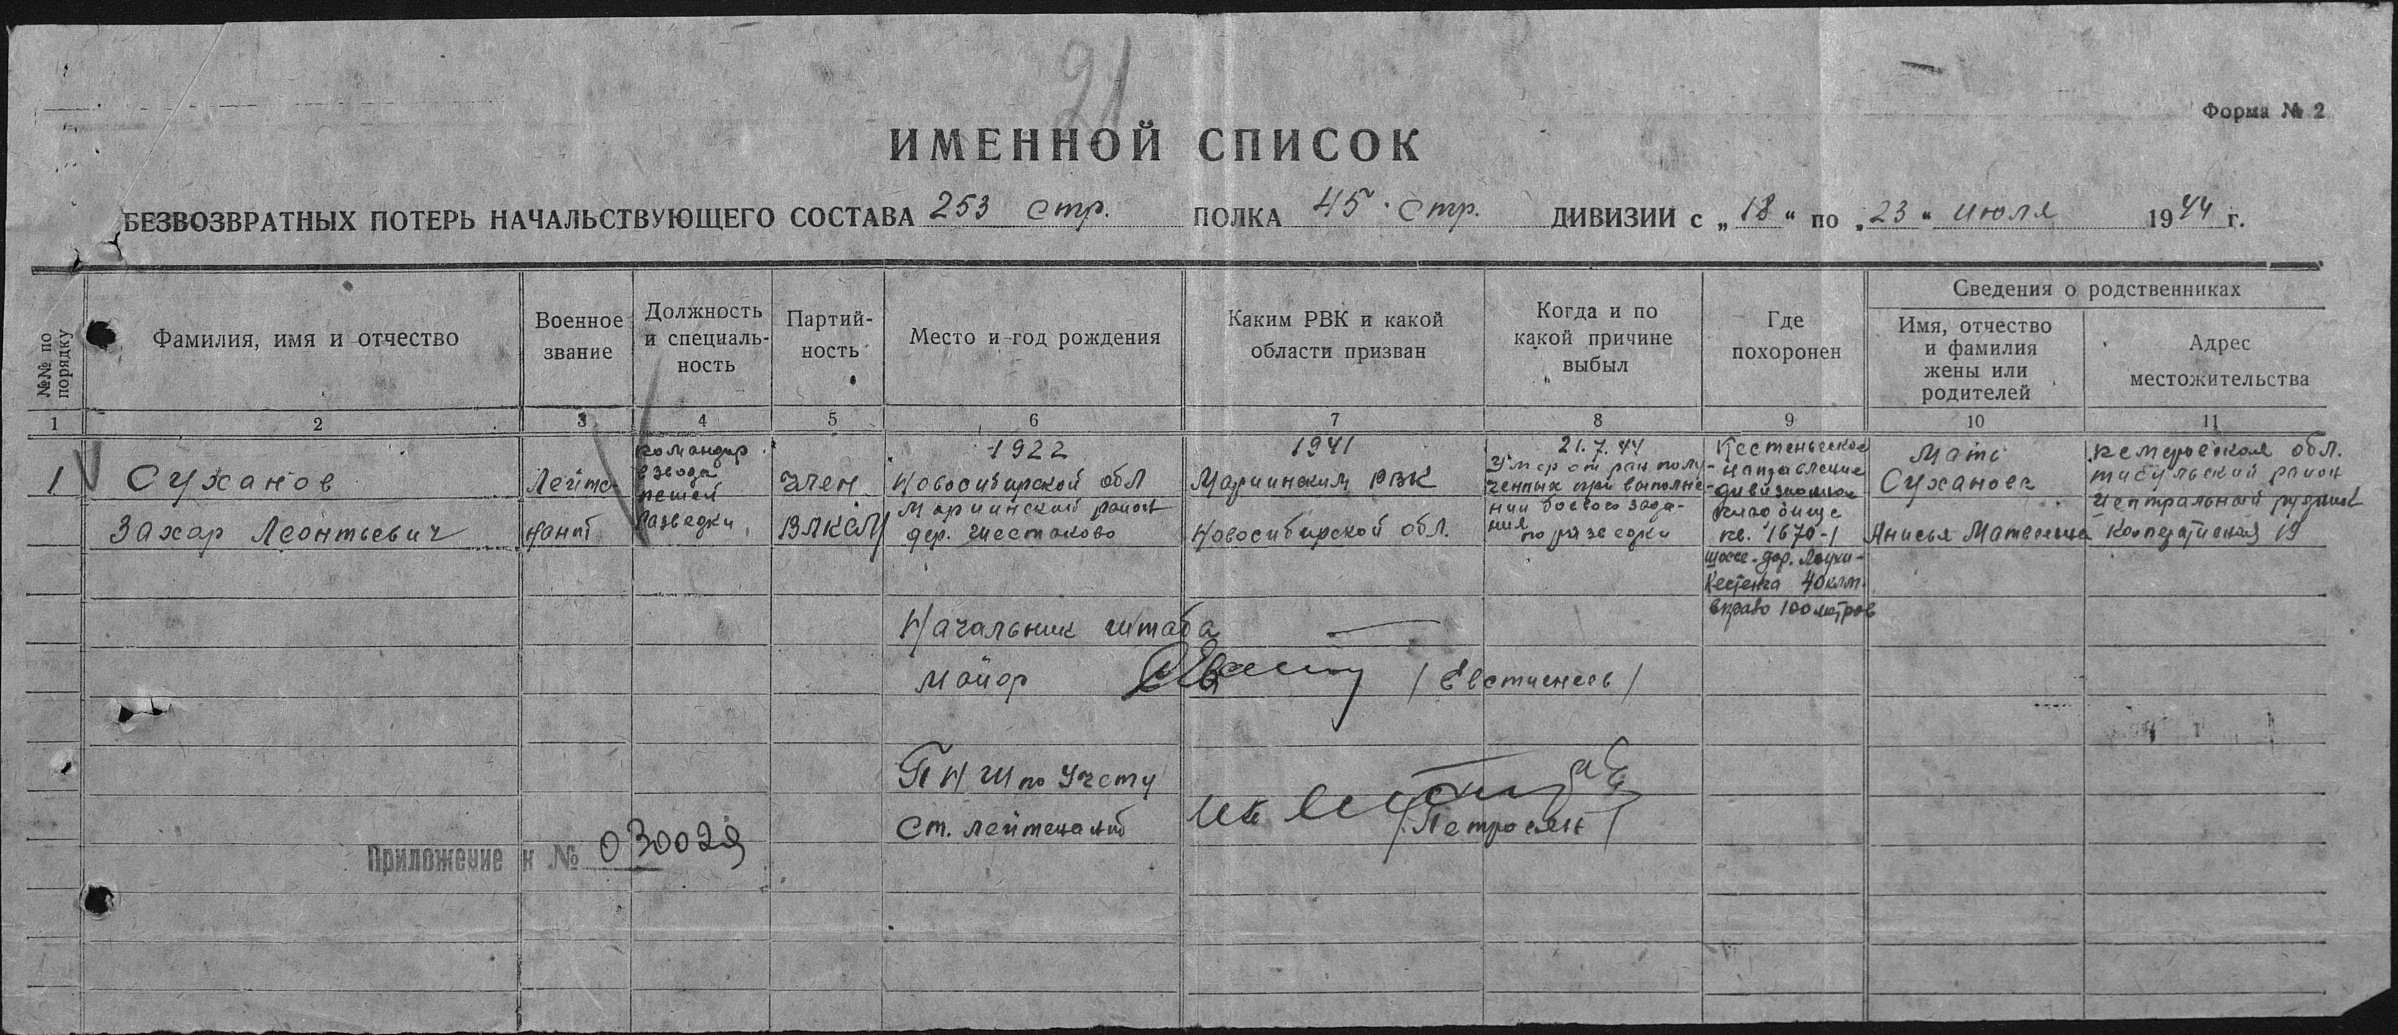 21
Форма № 2
ИМЕННОЙ СПИСОК
БЕЗВОЗВРАТНЫХ ПОТЕРЬ НАЧАЛЬСТВУЮЩЕГО СОСТАВА 253 стр. ПОЛКА 45 стр. ДИВИЗИИ с „18“ по „23“ июля 1944 г.
№№ по порядку
Фамилия, имя и отчество
Военное звание
Должность и специаль-
ность
Партий-
ность
Место и год рождения
Каким РВК и какой
области призван
Когда и по
какой причине
выбыл
Где
похоронен
Сведения о родственниках
Имя, отчество
и фамилия
жены или
родителей
Адрес
местожительства
1 2 3 4 5 6 7 8 9 10 11
1
Суханов
Захар Леонтьевич
Лейте-
нант
командир
взвода
пешей
разведки
член
ВЛКСМ
1922
Новосибирской обл
Мариинский район
дер. Шестаково
1941
Мариинским РВК
Новосибирской обл.
21.7.44
Умер от ран полу-
ченных при выполне-
нии боевого зада-
ния
по разведки
Кестеньгское
направление
дивизионное
кладбище
кв. 1670-1
шоссе-дор. Лоухи-
Кестенга 40 клм.
вправо 100 метров
Мать
Суханова
Анисья Матвеевна
Кемеровская обл.
Тисульский район
Центральный рудник
Кооперативная 19
Начальник штаба
майор
/Евстигнеев/
ПНШ по учету
Ст. лейтенант
/Петросян/
Приложение к № 030029